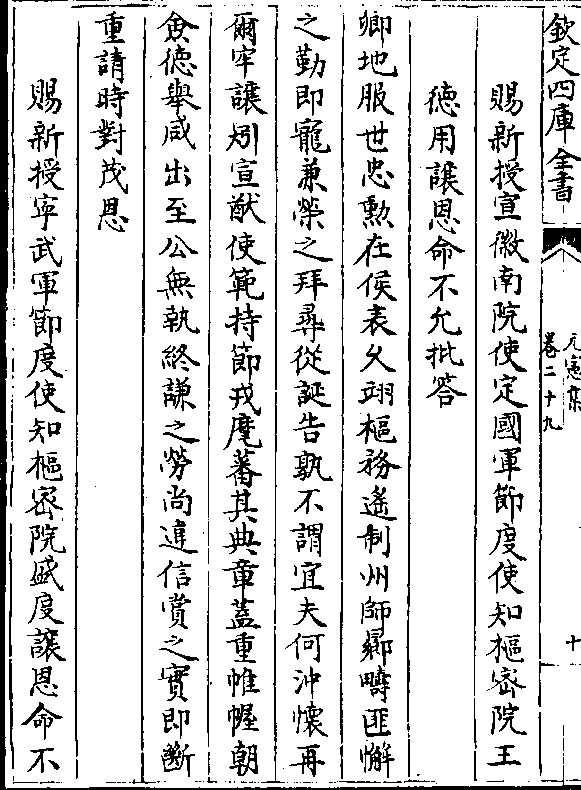 欽定四庫全書
元憲集
卷二十九
十
賜新授宣徽南院使定國軍節度使知樞密院王
德用讓恩命不允批答
卿地服世忠勲在侯表乆翊樞務遙制州師鄉疇匪懈
之勤即寵兼榮之拜尋從誕告孰不謂宜夫何沖懷再
爾牢讓矧宣猷使範持節戎麾蕃其典章蓋重帷幄朝
僉德舉咸出至公無執終謙之勞尚違信賞之實即斷
重請時對茂恩
賜新授寜武軍節度使知樞密院盛度讓恩命不